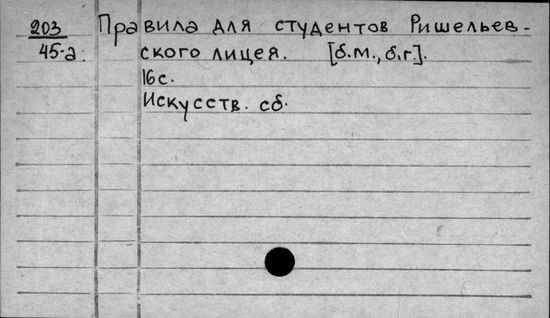 203 Правила для студентов Ришельев-
45-а. ского лицея. [б.м., б.г.].
16с.
Искусств. сб.